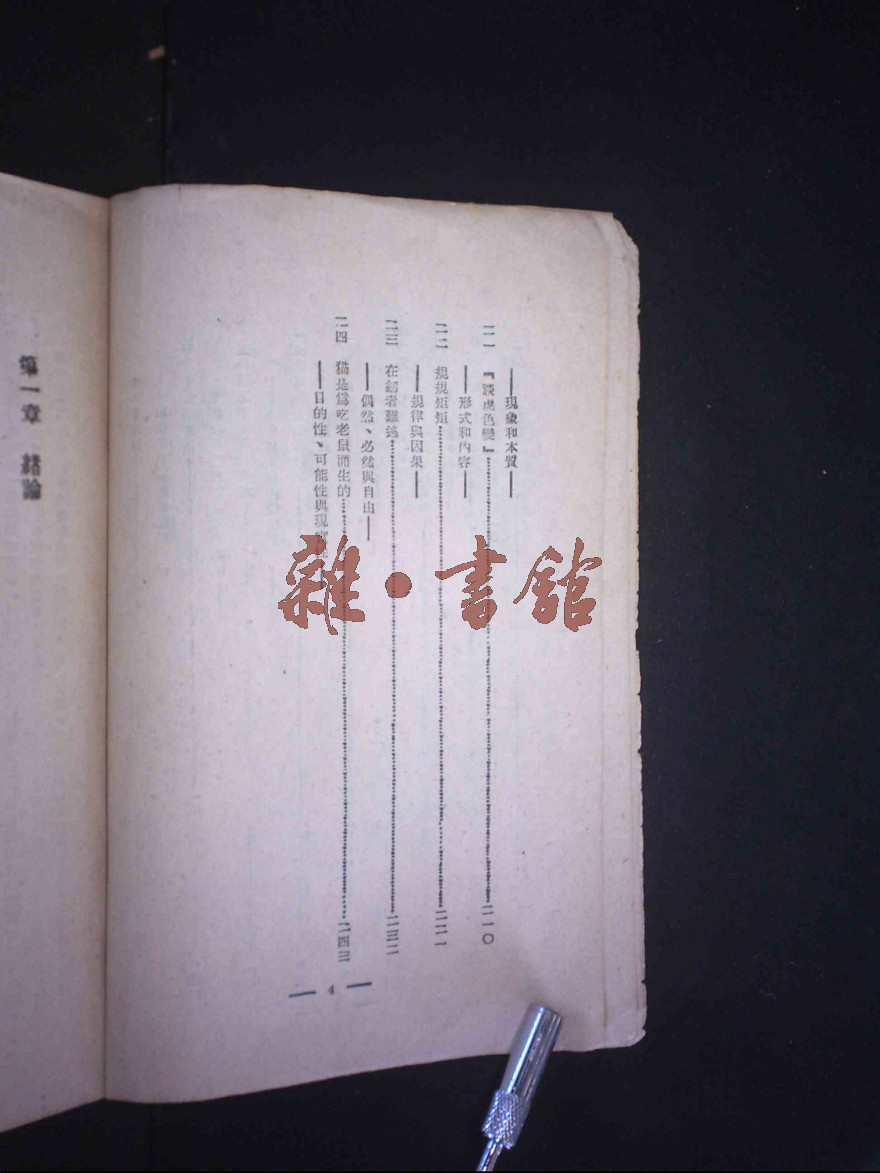 ——現象和本質——
二一 『談虎色變』……二一〇
——形式和內容——
二二 規規矩矩……二二一
——規律與因果——
二三 在劫者難逃……二三二
——偶然、必然與自由——
二四 猫是爲吃老鼠而生的……二四三
——目的性、可能性與現實性
— 4 —
第一章 緒論
雜·書館